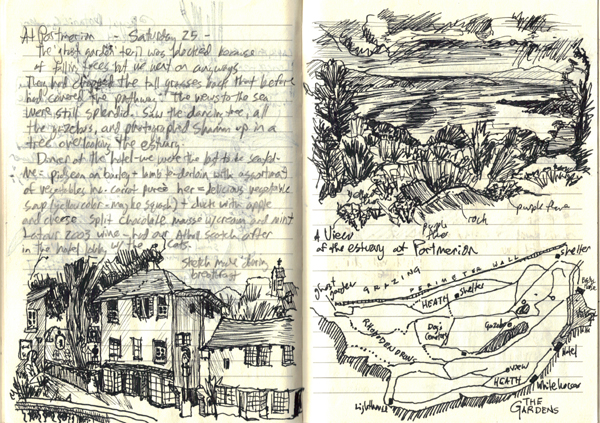 At Portmerion - Saturday 25 -
The ghost garden trail was blocked because
of fallin trees but we went on anyways.
They had chopped the tall grasses back that before
had covered the pathway. The views to the sea
were still splendid. Saw the dancing tree, all
the gazebos, and photographed Shawn up in a
tree overlooking the estuary.
Dinner at the hotel - we were the last to be seated.
me = pidgeon on barley + lamb tenderloin with assortment
of vegetables inc. carrot puree her = delicious vegetable
soup (yellow color - maybe squash) + duck with apple
and cheese. Split chocolate mousse w/cream and mint
2003 wine - red. Scotch after
in the hotel lobby w/the cats.
sketch made during
breakfast
yellow
purple
rock
purple
A View
of the estuary at Portmerion
ghost garden
GRAZING
PERIMETER WALL
shelter
HEATH
shelter
RHODODENDRONS
Dog
Cemetery
Gazebo
Village
Hotel
VIEW
HEATH
White horses
Lighthouse
THE
GARDENS